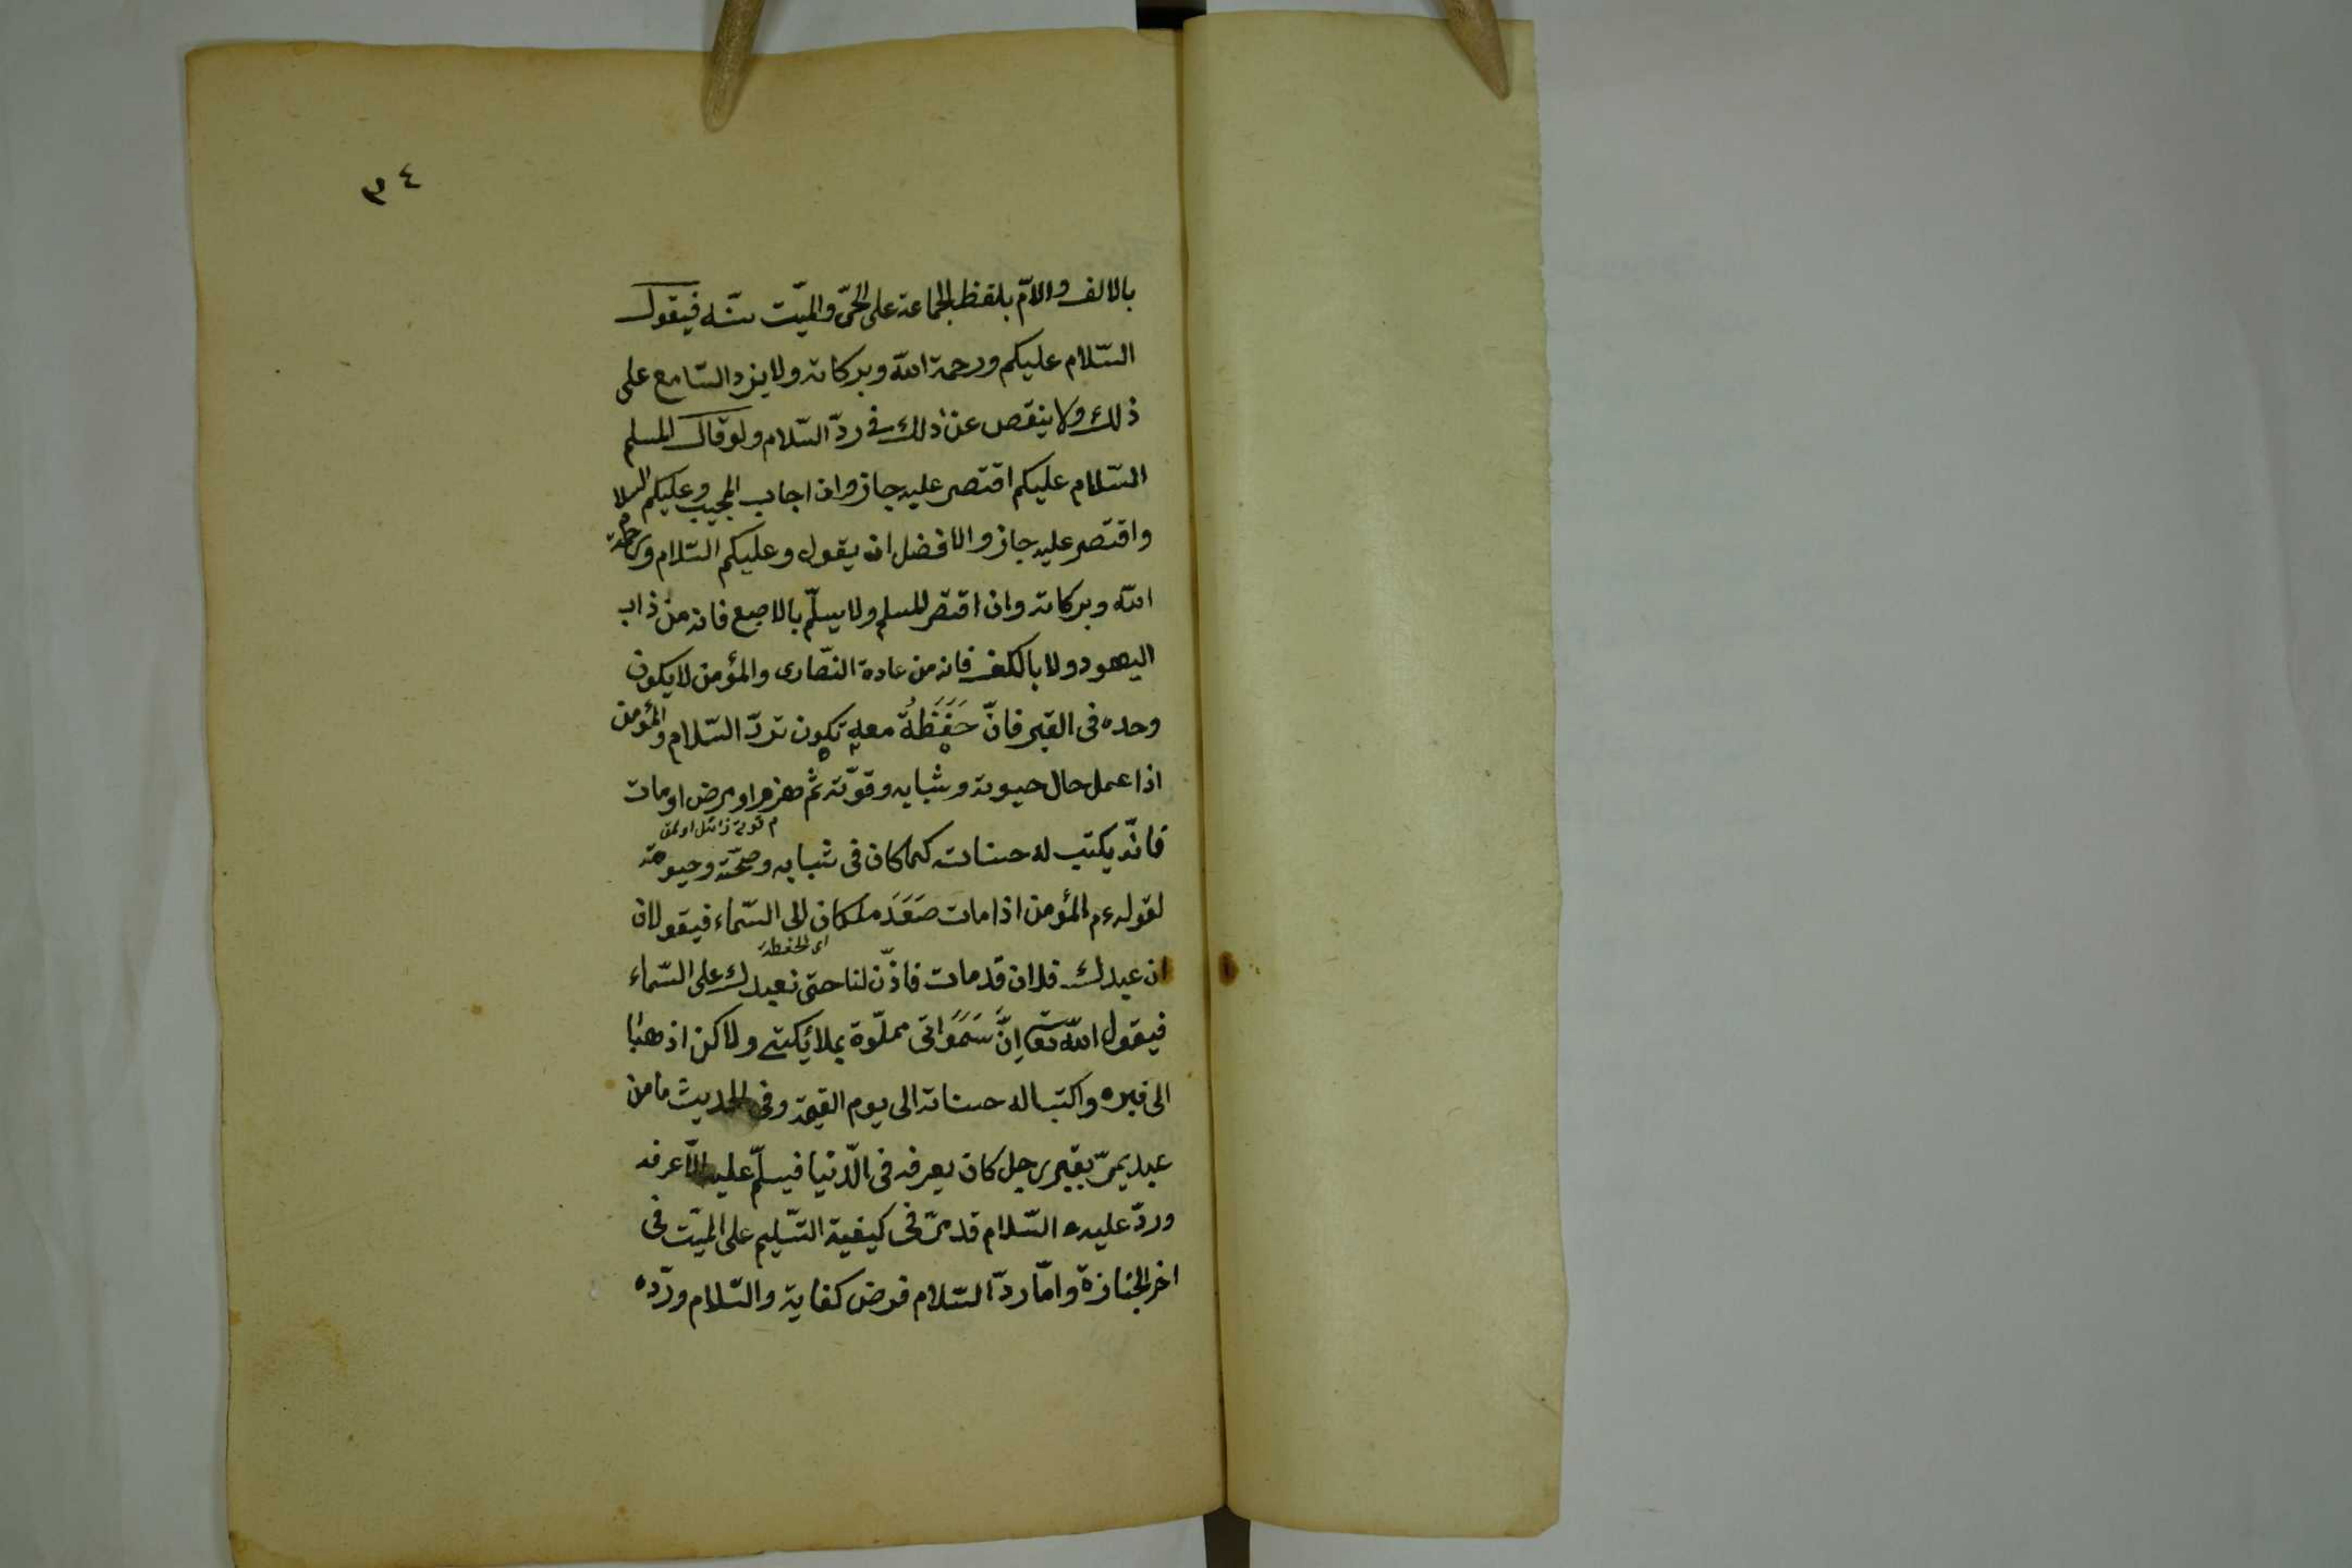 ٣٤
بالالف والامّ بلفظ الجماعة على الحىّ والميّت سنّة فيقول
السّلام عليكم ورحمة الله وبركاته ولا يزد السّامع على
ذلك ولا ينقص عن ذلك فى ردّ السّلام ولو قال المسلم
السّلام عليكم اقتصر عليه جاز وان اجاب المجيب وعليكم السلام
واقتصر عليه جاز والافضل ان يقول وعليكم السّلام ورحمة
الله وبركاته وان اقتصر المسلم ولا يسلّم بالاصبع فانه من ذاب
اليهود ولا بالكف فانه من عادة النّصارى والمؤمن لا يكون
وحده فى القبر فانّ حَفَظَةً معه تكون تردّ السّلام والمؤمن
اذا عمل حال حيوته وشبابه وقوّته ثم هزم او مرض او مات
فانّه يكتب له حسناته كما كان فى شبابه وصحّته وحيوته
لقوله عم المؤمن اذا مات صَعَدَ ملكان الى السّماء فيقولان
اى الحفظة
ان عبدك فلان قد مات فاذّن لنا حتى نعبدك على السّماء
فيقول الله تعا اِنَّ سَمَوَاتى مملوّة بملائكتى ولاكن اذهبا
الى قبره واكتبا له حسناته الى يوم القيمة وفى الحديث ما من
عبد يمرّ بقبر رجل كان يعرفه فى الدّنيا فيسلّم عليه الاّ عرفه
وردّ عليه السّلام قد مرّ فى كيفية التّسليم على الميّت فى
اخر الجنازة وامّا ردّ السّلام فرض كفاية والسّلام وردّه